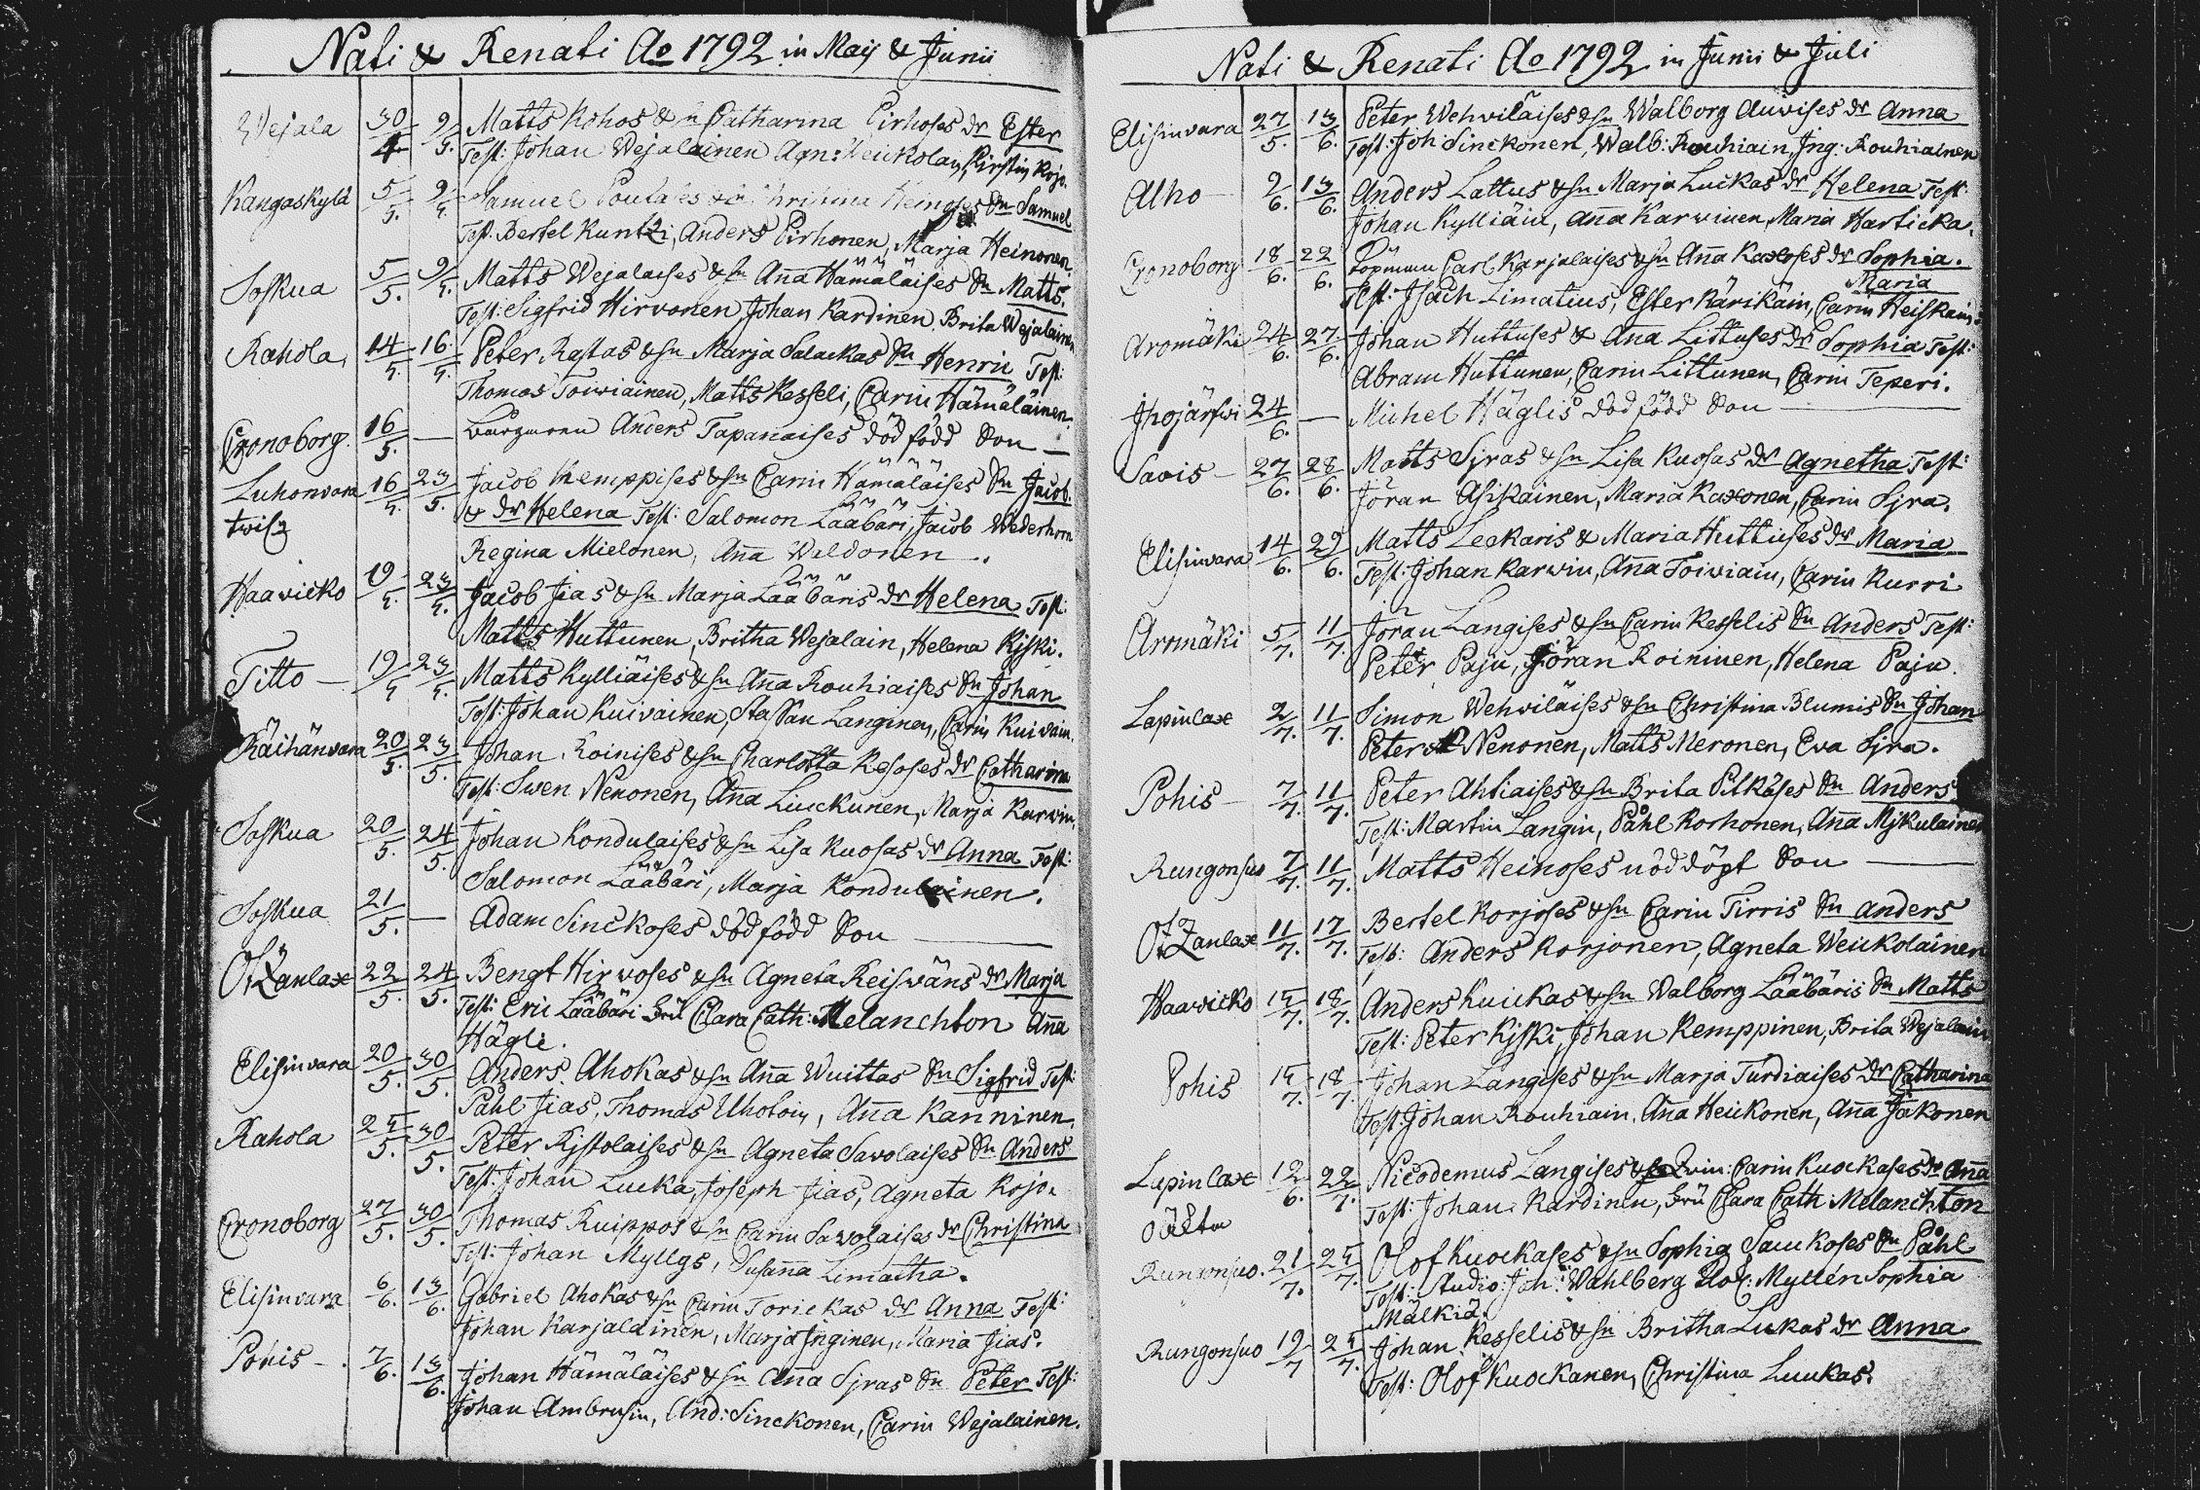 Nati & Renati Ao 1792 in Maij & Junii
Wejala 30/4 9/5. Matts Kohos & h Catharina Pirhoses dr Ester
Test: Johan Wejalainen Agn: Weickolan, Kirstin Kojo.
Kangaskylä 5/5. 9/5. Samuel & Heinoses Sn Samuel
Test. Bertel Kuntzi, Anders Pirhonen, Marja Heinonen.
Soskua 5/5. 9/5. Matts Wejalaises & hu Aña Hämäläises Sn Matts.
Test: Sigfrid Hirvonen, Johan Kardinen, Brita Wejalainen
Rahola, 14/5. 16/5. Peter Rastas & hu Marja Salackas Sn Henric Test:
Thomas Toiwiainen, Matts Kesseli, Carin Hämäläinen.
Cronoborg 16/5. — Anders Tapanaises död född Son —
Luhonvara 16/5. 23/5. Jacob Kemppises & hu Carin Hämäläises Sn Jacob
& dr Helena Test: Salomon Lääbäri, Jacob Wederhorn
Regina Mielonen, Aña Wildonen.
Haavicko 19/5. 23/5. Jacob Jias & hu Marja Lääbäris dr Helena Test:
Matts Huttunen, Britha Wejalain, Helena Kiski.
Titto — 19/5 23/5. Matts Kylliäises & hu Aña Rouhiaises Sn Johan
Test: Johan Kuivainen, Staffan Langinen, Carin Kuivain.
Räihänvara 20/5. 23/5. Johan Koinises & hu Charlotta Kesoses dr Catharina
Test: Swen Nenonen, Aña Linckunen, Marja Karvin.
Soskua 20/5. 24/5. Johan Kondulaises & hu Lisa Kuosas dr Anna Test:
Salomon Lääbäri, Marja Kondulainen.
Soskua 21/5. — Adam Sinckoses död född Son —
Otzanlax 22/5. 24/5. Bengt Hirvoses & hu Agneta Reiswäns dr Marja
Test: Eric Lääbäri Frü Clara Cath: Melanchton Aña
Hägli.
Elisinvara 20/5. 30/5. Anders Ahokas & hu Aña Wuittas Sn Sigfrid Test:
Påhl Jias, Thomas Uhotoin, Aña Kanninen.
Rahola 25/5. 30/5. Peter Ristolaises & hu Agneta Savolaises Sn Anders
Test: Johan Lucka, Joseph Jias, Agneta Kojo.
Cronoborg 27/5. 30/5. Thomas Kuippos & hu Carin Savolaises dr Christina
Test: Johan Myllys, Susaña Limatha.
Elisinvara 6/6. 13/6. Gabriel Ahokas & hu Carin Torickas dr Anna Test:
Johan Karjalainen, Marja Inginen, Maria Jias.
Pohis — 7/6. 13/6. Johan Hämäläises & hu Aña Sjras Sn Peter Test:
Johan Ambrusin, And: Sinckonen, Carin Wejalainen.
Nati & Renati Ao 1792 in Junii & Juli
Elisinvara 27/5. 13/6. Peter Wehviläises & hu Walborg Auvises dr Anna
Test: Joh: Sinckonen, Walb: Rouhiain, Ing: Rouhiainen
Alho — 9/6. 13/6. Anders Lattus & hu Marja Luckas dr Helena Test:
Johan Kylliäin, Aña Karvinen, Maria Harticka.
Cronoborg 18/6. 22/6. Carl Karjalaises & hu Aña Kaxoses dr Sophia.
Maria
Test: Limatius, Ester Kärikäin, Carin Heiskain.
Aromäki 24/6. 27/6. Johan Huttuses & Aña Littuses dr Sophia Test:
Abram Huttunen, Carin Littunen, Carin Teperi.
Ihojärfwi 24/6. — Michel Häglis död född Son —
Savis — 27/6. 28/6. Matts Sjras & hu Lisa Kuosas dr Agnetha Test:
Jöran Asikainen, Maria Kaxonen, Carin Sjra.
Elisinvara 14/6. 29/6. Matts Leckaris & Maria Huttuses dr Maria
Test: Johan Karvin, Aña Toiviain, Carin Kurri
Aromäki 5/7. 11/7. Jöran Langises & hu Carin Kesselis Sn Anders Test:
Peter Paju, Jöran Roininen, Helena Paju.
Lapinlax 2/7. 11/7. Simon Wehviläises & hu Christina Blumis Sn Johan
Peter Nenonen, Matts Meronen, Eva Sjra.
Pohis — 7/7. 11/7. Peter Ahtiaises & hu Brita Pitkäses Sn Anders
Test: Martin Langin, Påhl Korhonen, Aña Mikulainen
Rungonsuo 7/7. 11/7. Matts Heinoses nöddöpt Son —
Otzanlax 11/7. 17/7. Bertel Korjoses & hu Carin Tirris Sn Anders
Test: Anders Korjonen, Agneta Weickolainen
Haavicko 15/7. 18/7. Anders Kuickas & hu Walborg Lääbäris Sn Matts
Test: Peter Kiski, Johan Kemppinen, Brita Wejalain
Pohis 15/7. 18/7. Johan Langises & hu Marja Turdiaises dr Catharina
Test: Johan Rouhiain, Aña Heickonen, Aña Jäkonen
Lapinlax 12/6. 22/7. Nicodemus Langises & Carin Kuockases dr Aña
Test: Johan Kardinen, Frü Clara Cath Melanchton
oäkta
Rungonsuo. 21/7. 25/7. Olof Kuockases & hu Sophia Sauckoses Sn Påhl
Test: Studio: Joh: Wahlberg Myllén Sophia
Mälkiä.
Rungonsuo 19/7 25/7. Johan Kesselis & hu Britha Lukas dr Anna
Test: Olof Kuockanen, Christina Luukas.